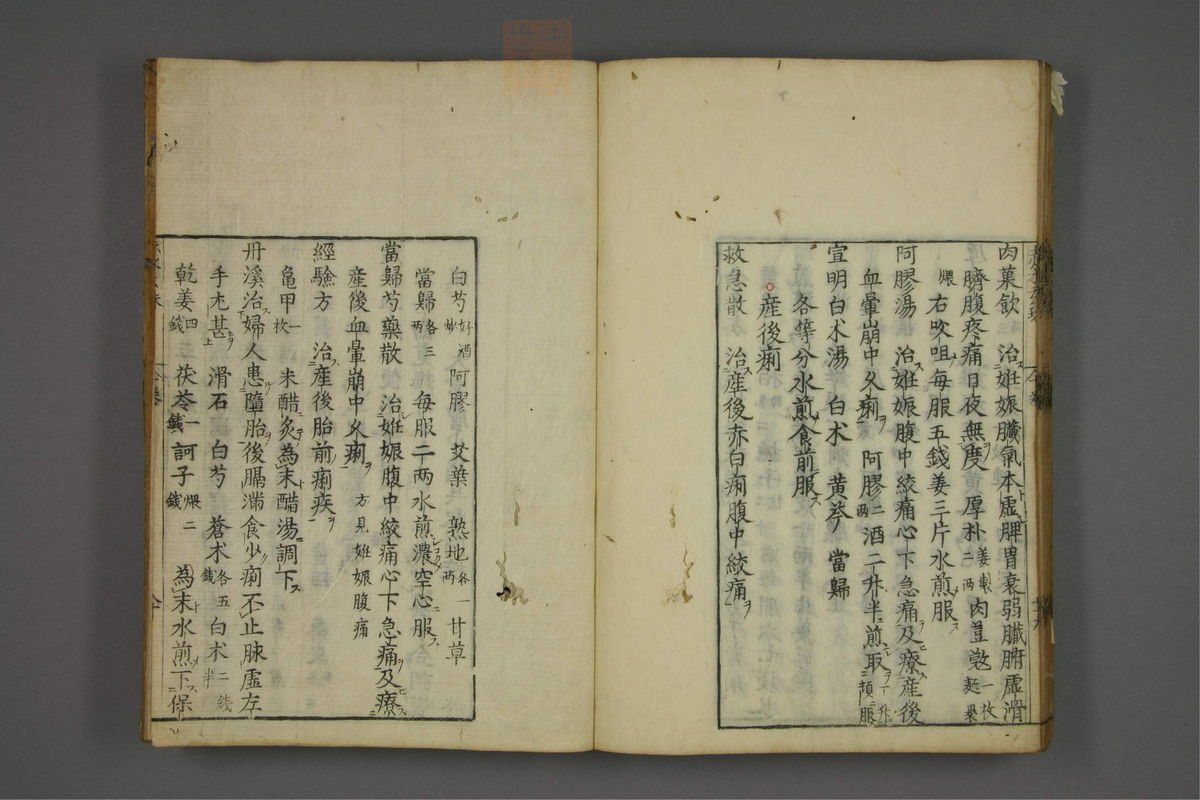 肉菓飲　治妊娠臓氣本虛脾胃衰弱臓腑虛滑
臍腹疼痛日夜無度厚朴姜製二兩肉荳蔲一枚麺褁
煨右㕮咀每服五錢姜三片水煎服
阿膠湯　治妊娠腹中絞痛心下急痛及療産後
血暈崩中久痢　阿膠二兩酒二升半煎取一升頓服
宣明白朮湯　白朮　黄芩　當歸
各等分水煎食前服
産後痢
救急散　治産後赤白痢腹中絞痛
白芍酒炒好　阿膠　艾葉　熟地各一兩　甘草
當歸各三兩　每服二两水煎濃空心服
當歸芍藥散　治妊娠腹中絞痛心下急痛及療
産後血暈崩中久痢　方見妊娠腹痛
經驗方　治産後胎前痢疾
亀甲一枚　米醋炙為末醋湯調下
丹溪治婦人患墮胎後膈滿食少痢不止脉虛左
手尤甚　滑石　白芍　蒼朮各五錢　白朮二錢半
乾姜四錢　茯苓一錢　訶子煨二錢　為末水煎下保